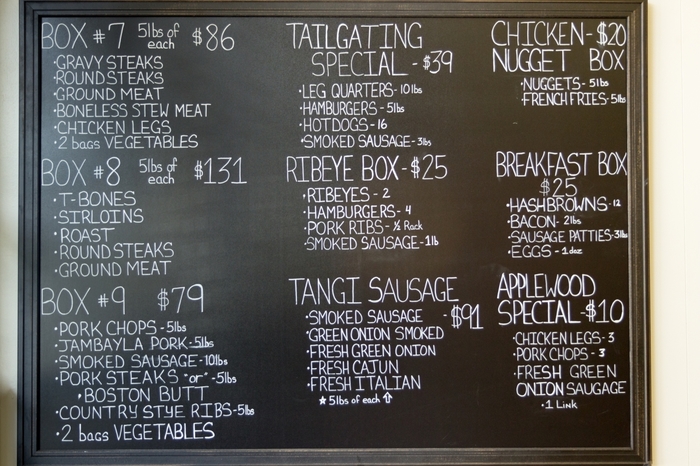 BOX #7 5lbs of each $86
·GRAVY STEAKS
·ROUND STEAKS
·GROUND MEAT
·BONELESS STEW MEAT
·CHICKEN LEGS
·2 bags VEGETABLES
BOX #8 5lbs of each $131
·T-BONES
·SIRLOINS
·ROAST
·ROUND STEAKS
·GROUND MEAT
BOX #9 $79
·PORK CHOPS-5lbs
·JAMBAYLA PORK-5lbs
·SMOKED SAUSAGE-10lbs
·PORK STEAKS "or"-5lbs
·BOSTON BUTT
·COUNTRY STYE RIBS-5lbs
·2 bags VEGETABLES
TAILGATING
SPECIAL-$39
·LEG QUARTERS-10lbs
·HAMBURGERS-5lbs
·HOTDOGS-16
·SMOKED SAUSAGE-3lbs
RIBEYE BOX-$25
·RIBEYES-2
·HAMBURGERS-4
·PORK RIBS-½ Rack
·SMOKED SAUSAGE-1lb
TANGI SAUSAGE
-$91
·SMOKED SAUSAGE
·GREEN ONION SMOKED
·FRESH GREEN ONION
·FRESH CAJUN
·FRESH ITALIAN
★5lbs of each⇧
CHICKEN-$20
NUGGET BOX
·NUGGETS-5lbs
·FRENCH FRIES-5lbs
BREAKFAST BOX
$25
·HASHBROWNS-12
·BACON-2lbs
·SAUSAGE PATTIES-3lbs
·EGGS-1doz
APPLEWOOD
SPECIAL-$10
·CHICKEN LEGS-3
·PORK CHOPS-3
·FRESH GREEN
ONION SAUGAGE
·1 Link